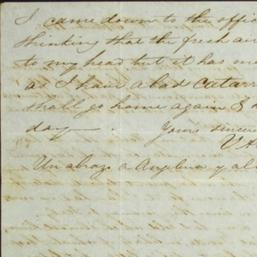 I came down to the offic
thinking that the fresh air
to my head but it has m
as I have a bad catarr
shall go home again &
day.
Yours sincer
Un abrazo a Angelina y al